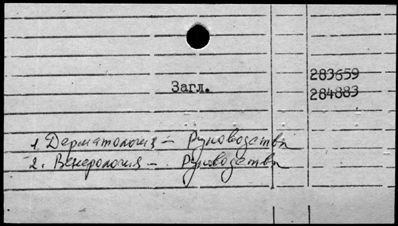 283659
Загл.
284883
1. Дерматология – Руководства
2. Венерология – Руководства